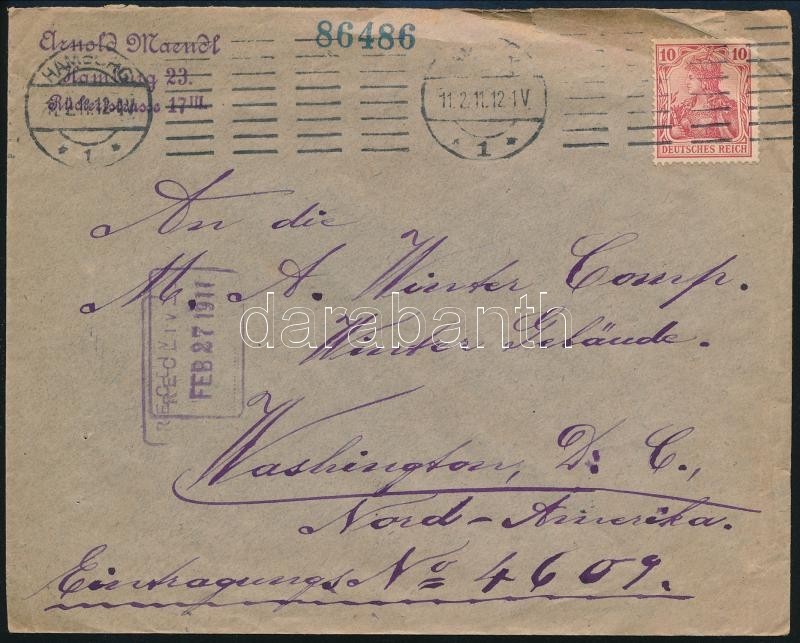 86486
Arnold Maendl
Hamburg 23.
17 III.
HAMBURG
11.2.11.12-1V.
* 1 *
11.2.11.12-1V.
* 1 *
10 10
DEUTSCHES REICH
An die
M. A. Winter Comp.
Winter Gebäude.
RECEIVED
FEB 27 1911
darabanth
Washington, D. C.,
Nord-Amerika.
Eintragungs No 4609.